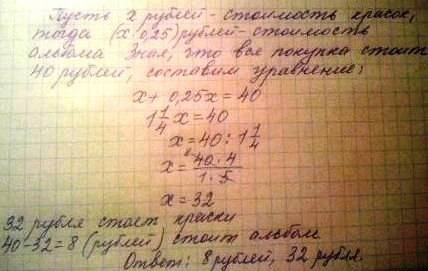 Пусть x рублей - стоимость красок,
тогда (x 0,25) рублей - стоимость
альбома Зная, что вся покупка стоит
40 рублей, составим уравнение:
x + 0,25x = 40
1 1/4 x = 40
x = 40 : 1 1/4
x = 40 · 4 / 1 · 5
x = 32
32 рубля стоят краски
40-32=8 (рублей) стоит альбом
Ответ: 8 рублей, 32 рубля.